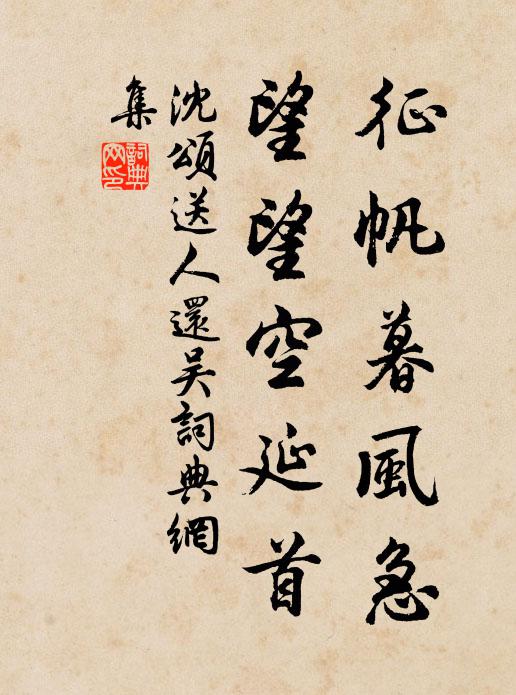 征帆暮風急
望望空延首
沈頌送人還吳詞典網
集
詞典
网印